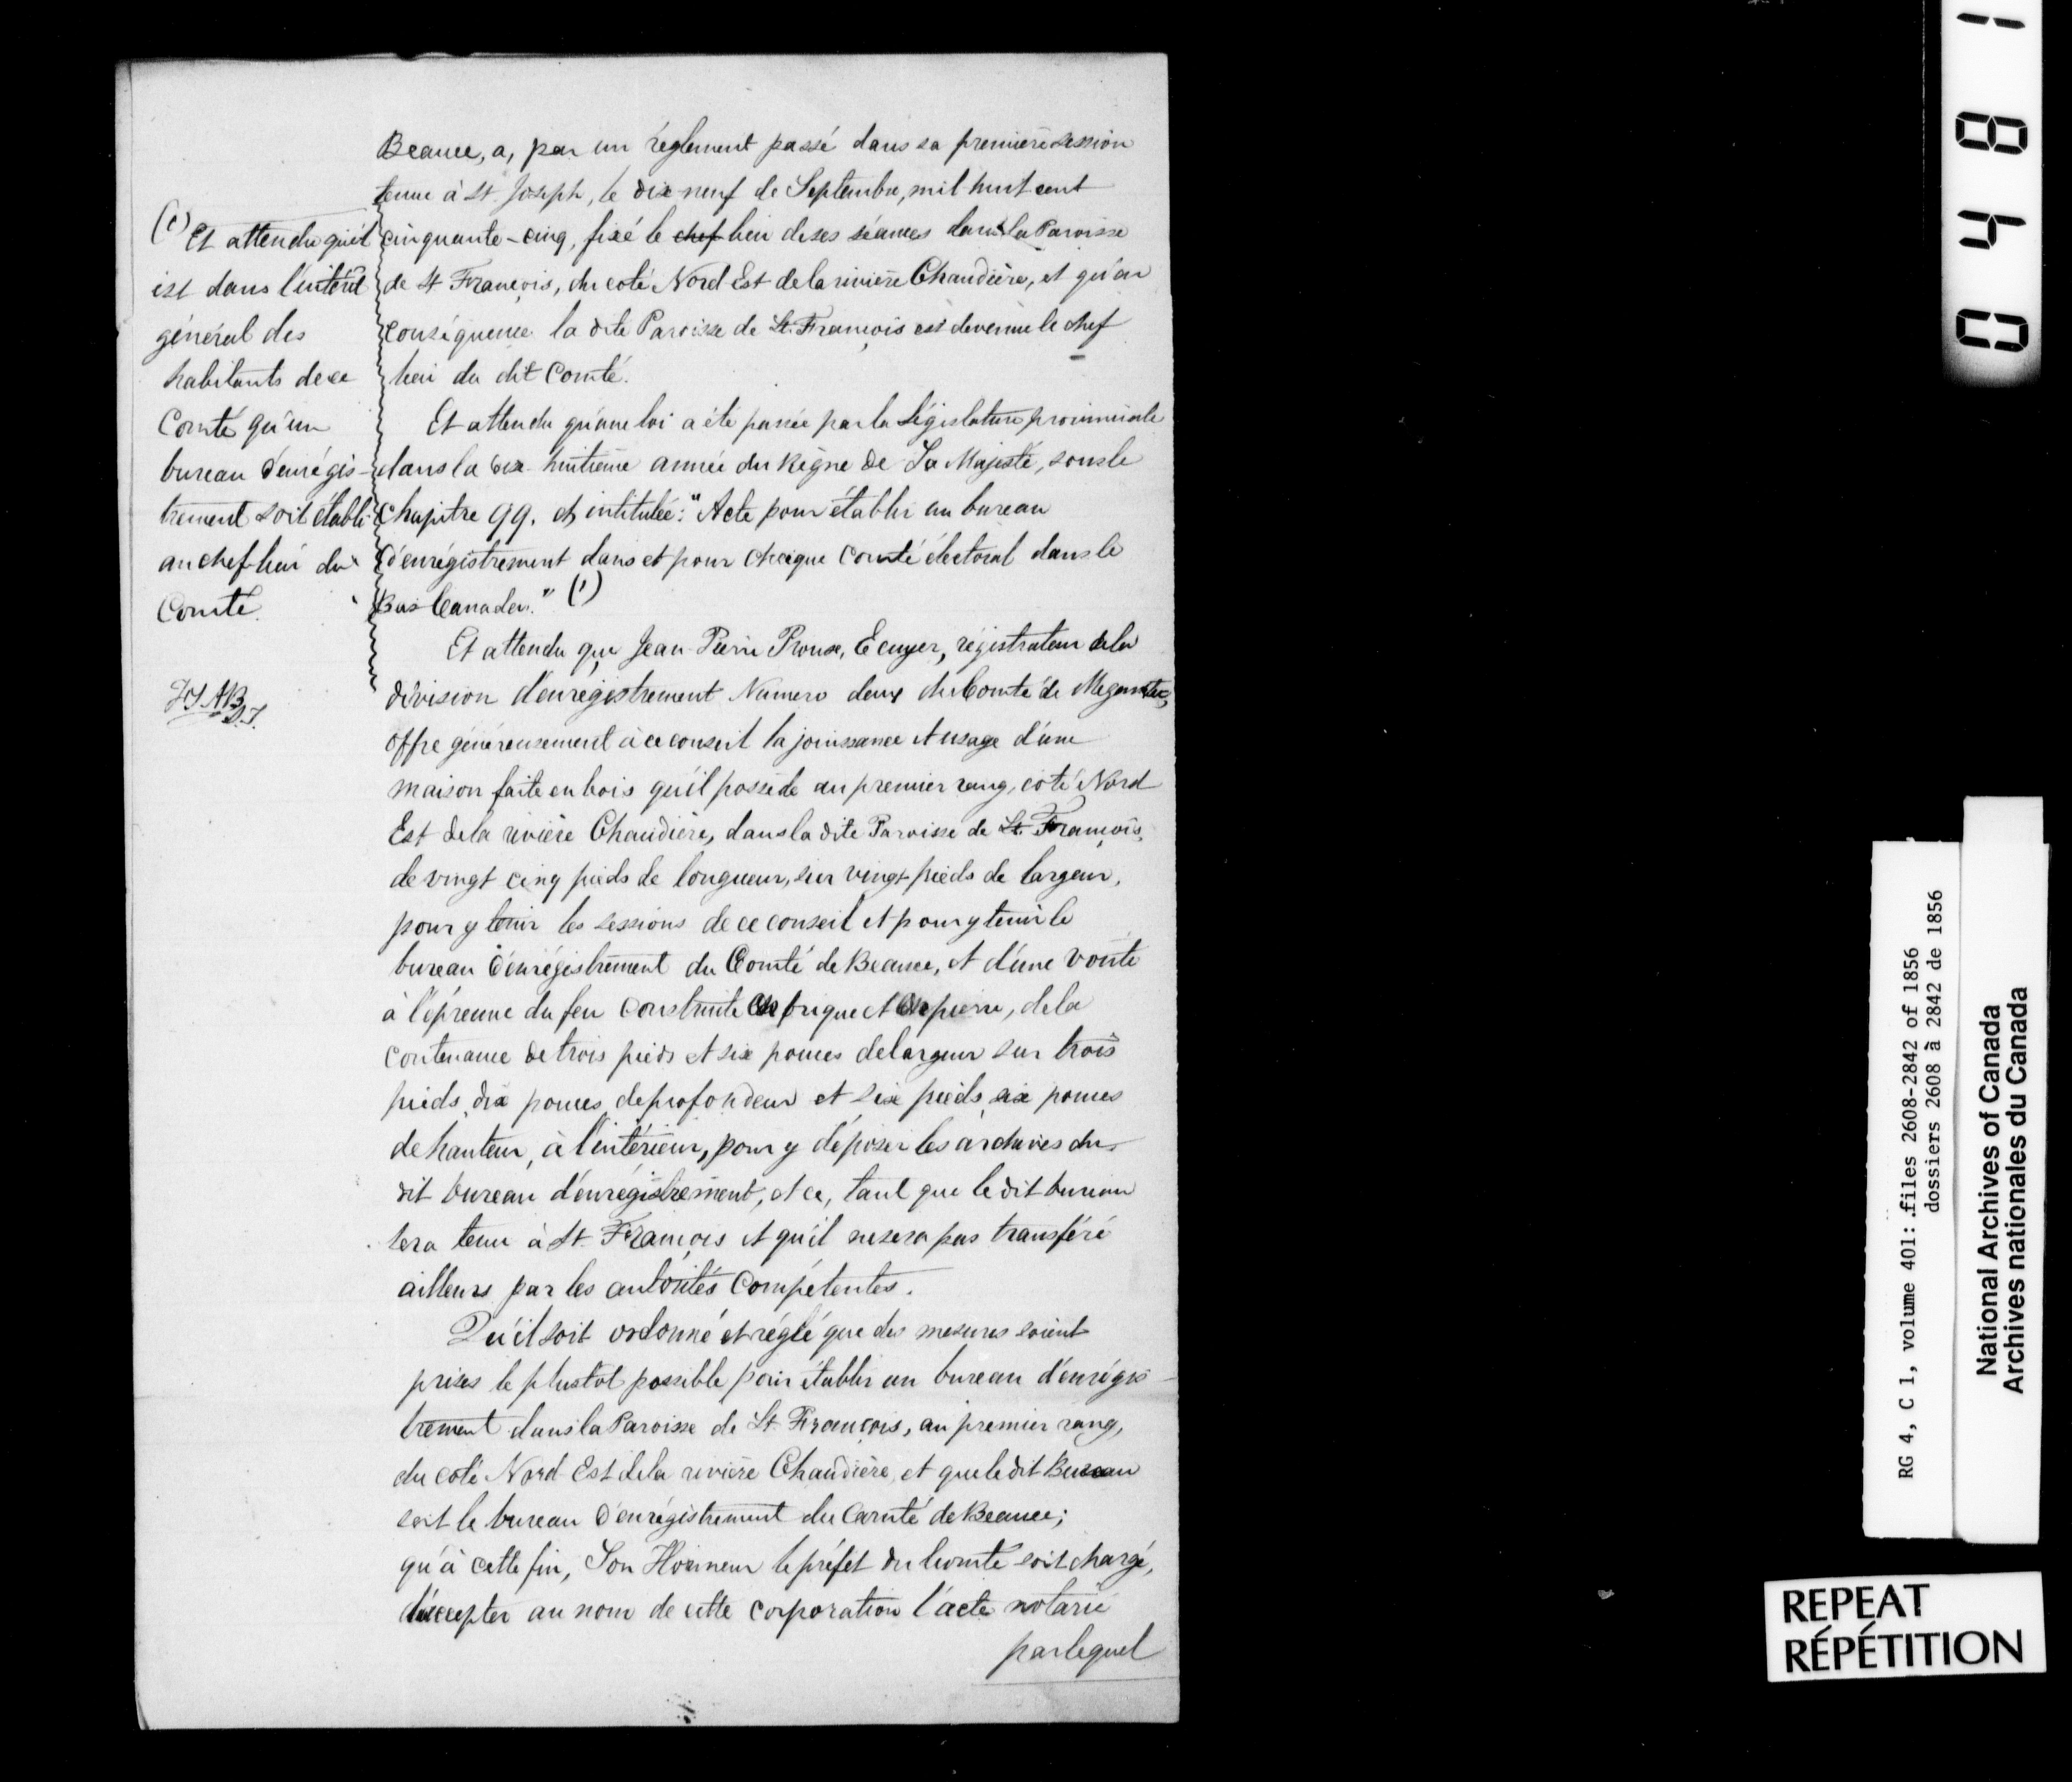 Beauce, a, par un réglement passé dans sa première session
tenue à St. Joseph, le dix neuf de Septembre, mil huit cent
cinquante-cinq, fixé le chef lieu de ses séances dans la Paroisse
de St François, du coté Nord Est de la rivière Chaudière, et qu'en
conséquence la dite Paroisse de St. François est devenue le chef
lieu du dit Comté.
Et attendu qu'une loi a été passée par la Législature provinciale
dans la dix huitième année du Règne de Sa Majesté, sous le
Chapitre 99. et intitulée: "Acte pour établir un bureau
d'enrégistrement dans et pour chaque Comté électoral dans le
Bas Canada." (1)
(1) Et attendu qu'il
est dans l'intérêt
général des
habitants de ce
Comté qu'un
bureau d'enrégis-
trement soit établi
au chef-lieu du
Comté.
Et attendu que Jean Pierre Proulx, Ecuyer, régistrateur de la
division d'enrégistrement Numero deux du Comté de Megantic,
offre généreusement à ce conseil la jouissance et usage d'une
maison faite en bois qu'il possède au premier rang, coté Nord
Est de la rivière Chaudière, dans la dite Paroisse de St. François,
de vingt cinq pieds de longueur, sur vingt pieds de largeur,
pour y tenir les sessions de ce conseil et pour y tenir le
bureau d'enrégistrement du Comté de Beauce, et d'une voute
à l'épreuve du feu construite en brique et en pierre, de la
contenance de trois pieds et six pouces de largeur sur trois
pieds dix pouces de profondeur et six pieds six pouces
de hauteur, à l'intérieur, pour y déposer les archives du
dit bureau d'enrégistrement, et ce, tant que le dit bureau
sera tenu à St. François et qu'il ne sera pas transféré
ailleurs par les autorités Compétentes.
Qu'il soit ordonné et réglé que des mesures soient
prises le plustot possible pour établir un bureau d'enrégis-
trement dans la Paroisse de St François, au premier rang,
du coté Nord Est de la rivière Chaudière, et que le dit Bureau
soit le bureau d'enrégistrement du Comté de Beauce;
qu'à cette fin, Son Honneur le préfet du Comté soit chargé,
d'accepter au nom de cette corporation l'acte notarié
par lequel
0481
RG 4, C 1, volume 401: files 2608-2842 of 1856
dossiers 2608 à 2842 de 1856
National Archives of Canada
Archives nationales du Canada
REPEAT
RÉPÉTITION